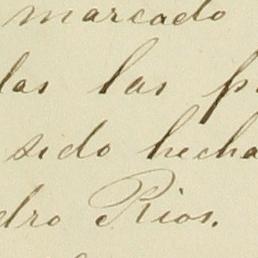 marcado
las las p
sido hecha
dro Rios.